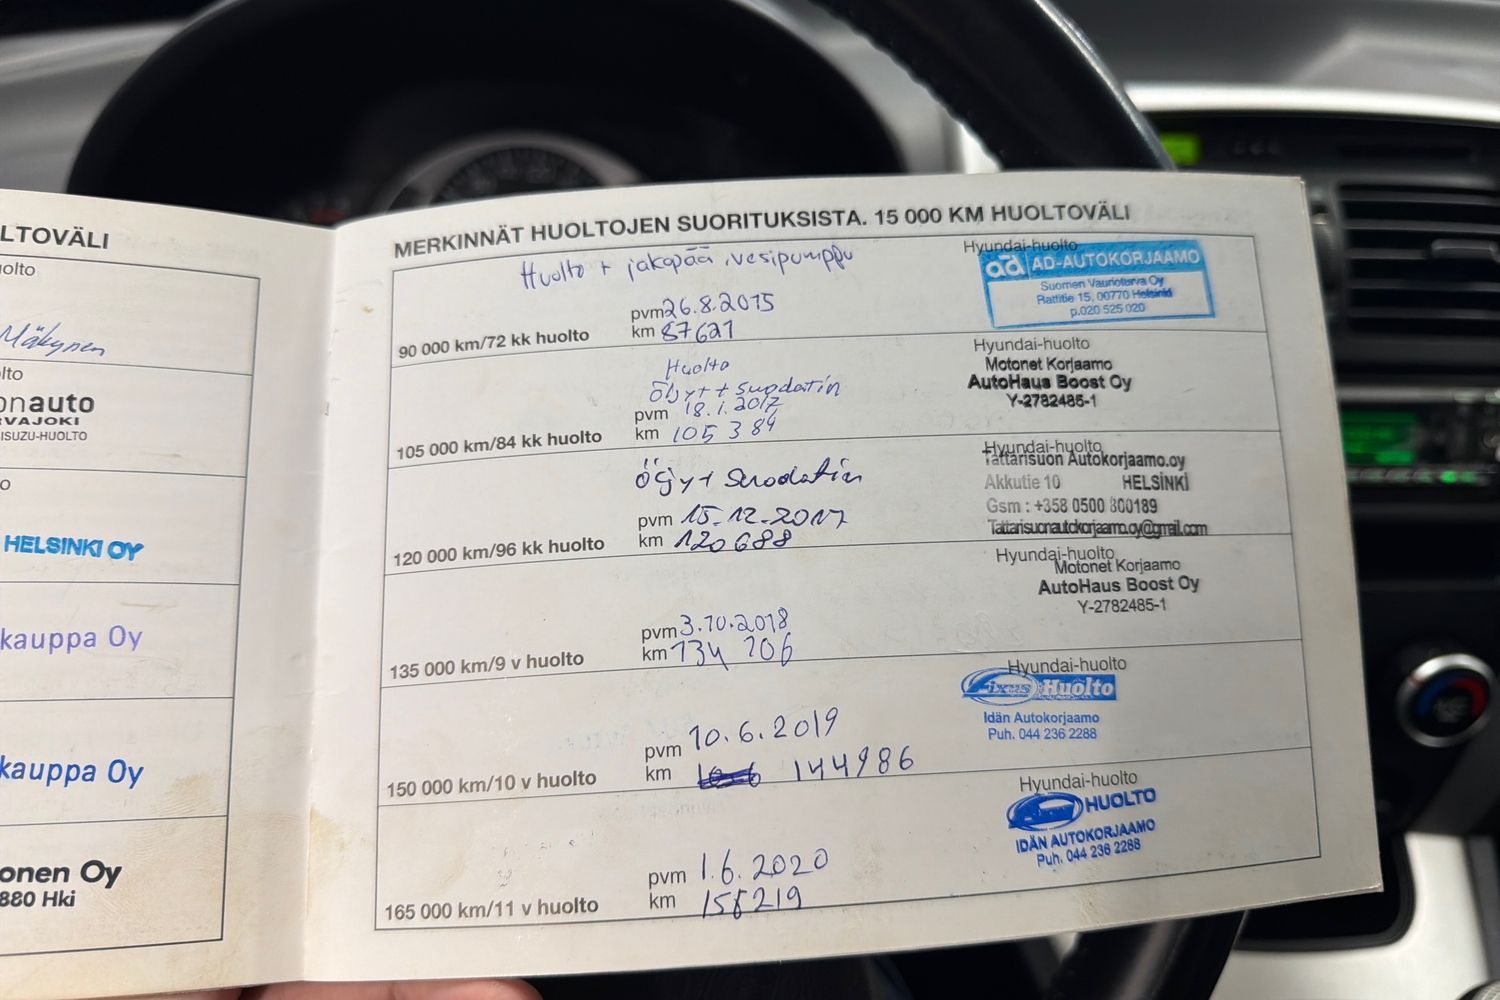 LTOVÄLI
olto
Mäkynen
lto
onauto
RVAJOKI
ISUZU-HUOLTO
o
HELSINKI OY
kauppa Oy
kauppa Oy
onen Oy
880 Hki
MERKINNÄT HUOLTOJEN SUORITUKSISTA. 15 000 KM HUOLTOVÄLI
Huolto + jakopää, vesipumppu
pvm 26.8.2015
90 000 km/72 kk huolto km 87621
Hyundai-huolto
ad AD-AUTOKORJAAMO
Suomen Vaurioturva Oy
Rattitie 15, 00770 Helsinki
p.020 525 020
Huolto
Öljyt + Suodatin
pvm 18.1.2017
105 000 km/84 kk huolto km 105 384
Hyundai-huolto
Motonet Korjaamo
AutoHaus Boost Oy
Y-2782485-1
Öljyt Suodatin
pvm 15.12.2017
120 000 km/96 kk huolto km 120 688
Hyundai-huolto
Tattarisuon Autokorjaamo.oy
Akkutie 10 HELSINKI
Gsm : +358 0500 800189
Tattarisuonautokorjaamo.oy@gmail.com
pvm 3.10.2018
135 000 km/9 v huolto km 134 706
Hyundai-huolto
Motonet Korjaamo
AutoHaus Boost Oy
Y-2782485-1
pvm 10.6.2019
150 000 km/10 v huolto km 144986
Hyundai-huolto
Fixus Huolto
Idän Autokorjaamo
Puh. 044 236 2288
pvm 1.6.2020
165 000 km/11 v huolto km
Hyundai-huolto
HUOLTO
IDÄN AUTOKORJAAMO
Puh. 044 236 2288